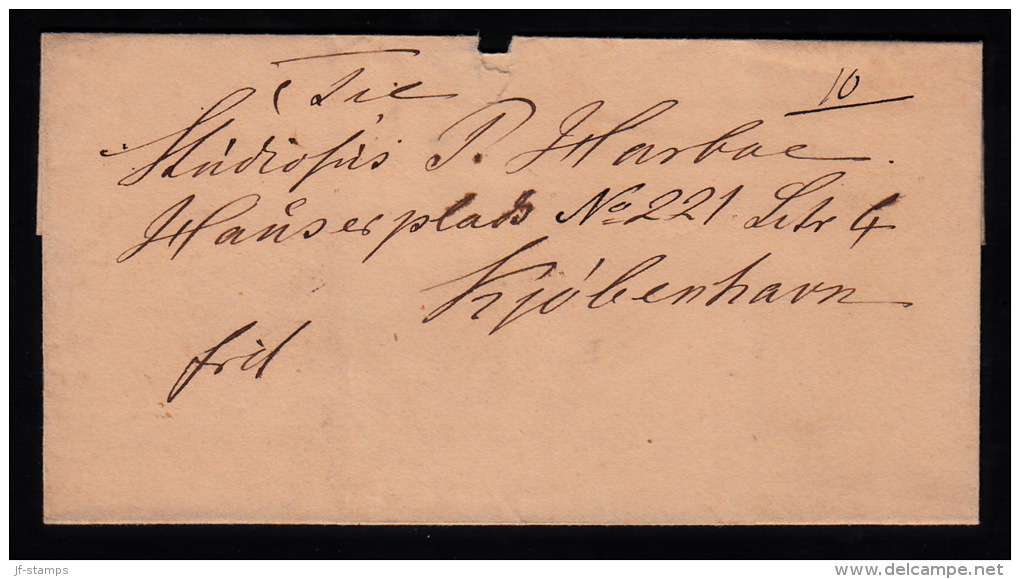 10
Til
Studiosus P. Harboe.
Hauserplads No 221 Litr 4
Kjøbenhavn
frit
jf-stamps
delcampe.net